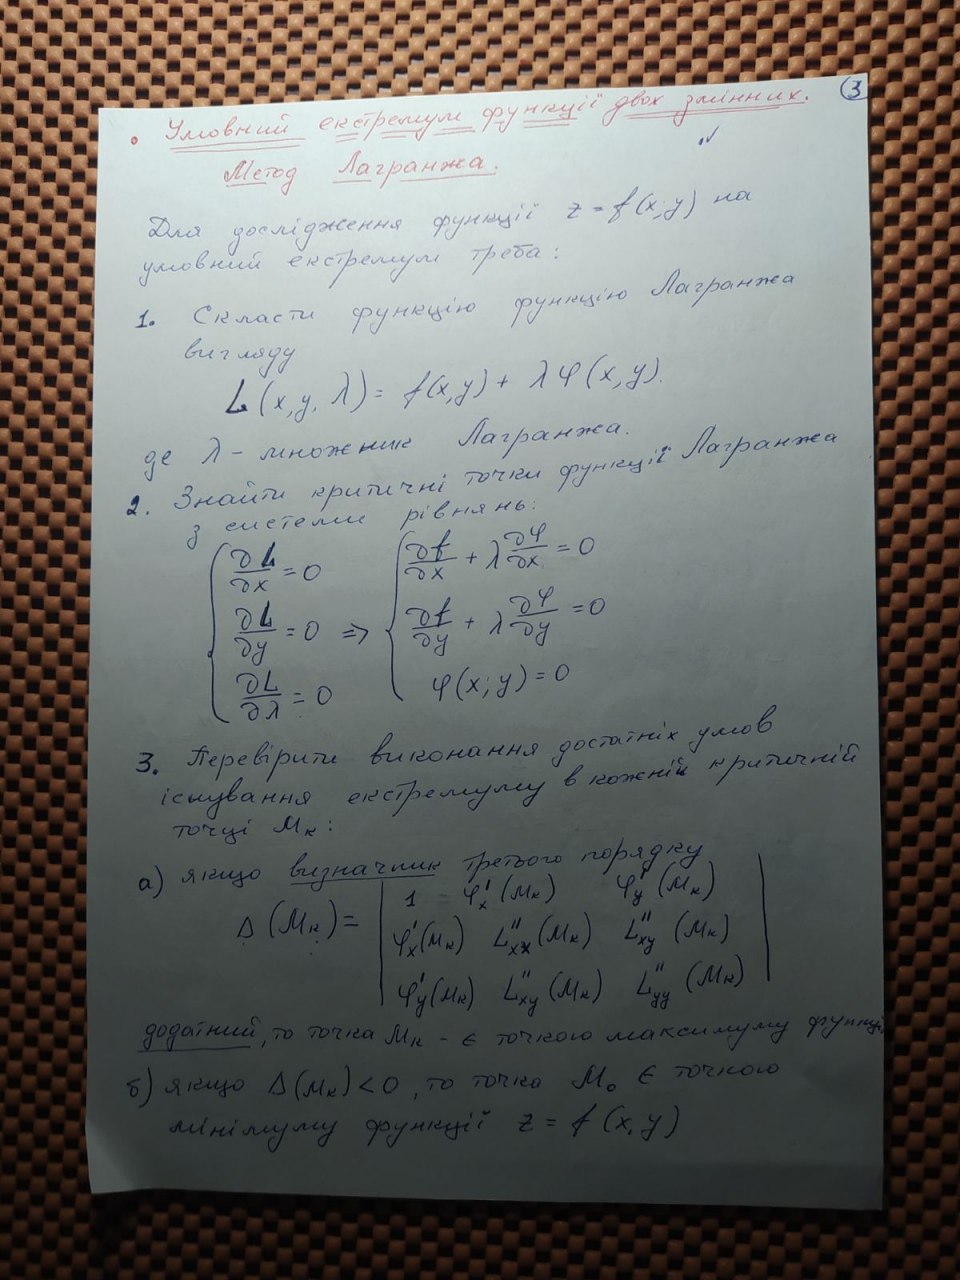 ③
• Умовний екстремум функції двох змінних.
Метод Лагранжа.
Для дослідження функції z = f(x; y) на
умовний екстремум треба:
1. Скласти функцію функцію Лагранжа
вигляду
L(x, y, λ) = f(x, y) + λ φ(x, y).
де λ - множник Лагранжа.
2. Знайти критичні точки функції Лагранжа
з системи рівнянь:
{ ∂L/∂x = 0 { ∂f/∂x + λ ∂φ/∂x = 0
{ ∂L/∂y = 0 => { ∂f/∂y + λ ∂φ/∂y = 0
{ ∂L/∂λ = 0 { φ(x; y) = 0
3. Перевірити виконання достатніх умов
існування екстремуму в кожній критичній
точці Mк:
а) якщо визначник третього порядку
| 1 φ'x(Mк) φ'y(Mк) |
Δ(Mк) = | φ'x(Mк) L''xx(Mк) L''xy(Mк) |
| φ'y(Mк) L''xy(Mк) L''yy(Mк) |
додатний, то точка Mк - є точкою максимуму функції
б) якщо Δ(Mк) < 0, то точка M₀ є точкою
мінімуму функції z = f(x, y)